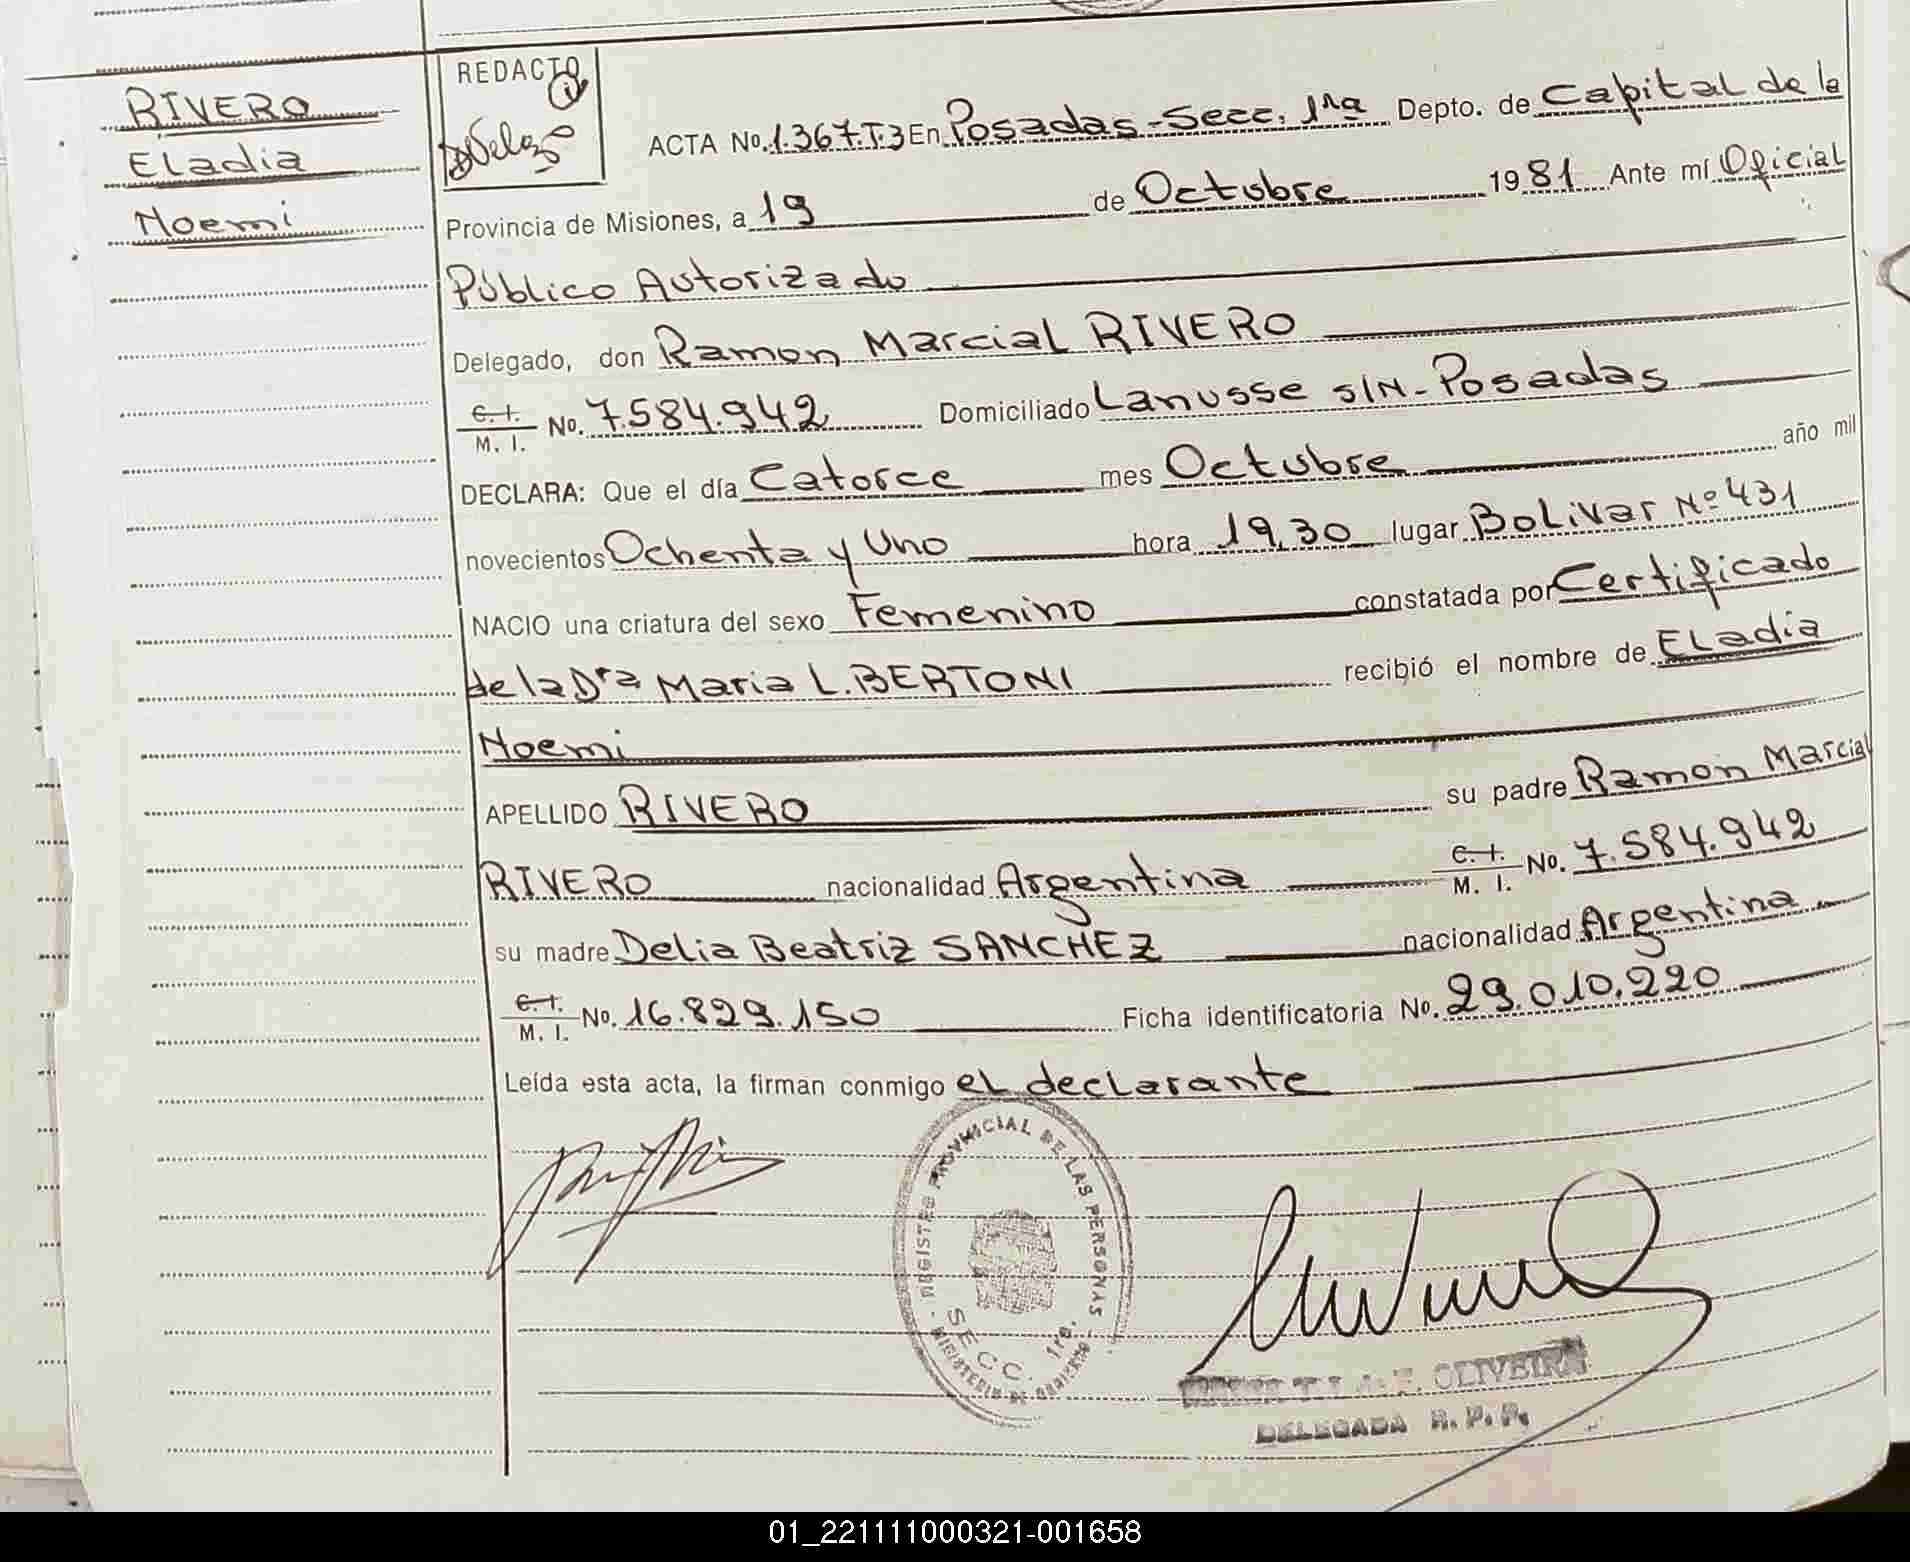 RIVERO
Eladia
Noemi
REDACTO
ACTA No. 1.367.T.3 En Posadas-Secc. 1ra Depto. de Capital de la
Provincia de Misiones, a 19 de Octubre 1981 Ante mí Oficial
Público Autorizado
Delegado, don Ramon Marcial RIVERO
C. I. M. I. No. 7.584.942 Domiciliado Lanusse S/N-Posadas
DECLARA: Que el día Catorce mes Octubre año mil
novecientos Ochenta y Uno hora 19,30 lugar Bolivar Nº 431
NACIO una criatura del sexo Femenino constatada por Certificado
de la Dra Maria L. BERTONI recibió el nombre de Eladia
Noemi
APELLIDO RIVERO su padre Ramon Marcial
RIVERO nacionalidad Argentina C. I. M. I. No. 7.584.942
su madre Delia Beatriz SANCHEZ nacionalidad Argentina
C. I. M. I. No. 16.829.150 Ficha identificatoria No. 29.010.220
Leída esta acta, la firman conmigo el declarante
REGISTRO PROVINCIAL DE LAS PERSONAS
SECC. 1ra.
MINISTERIO DE GOBIERNO
OLIVEIRA
DELEGADA R. P. P.
01_221111000321-001658